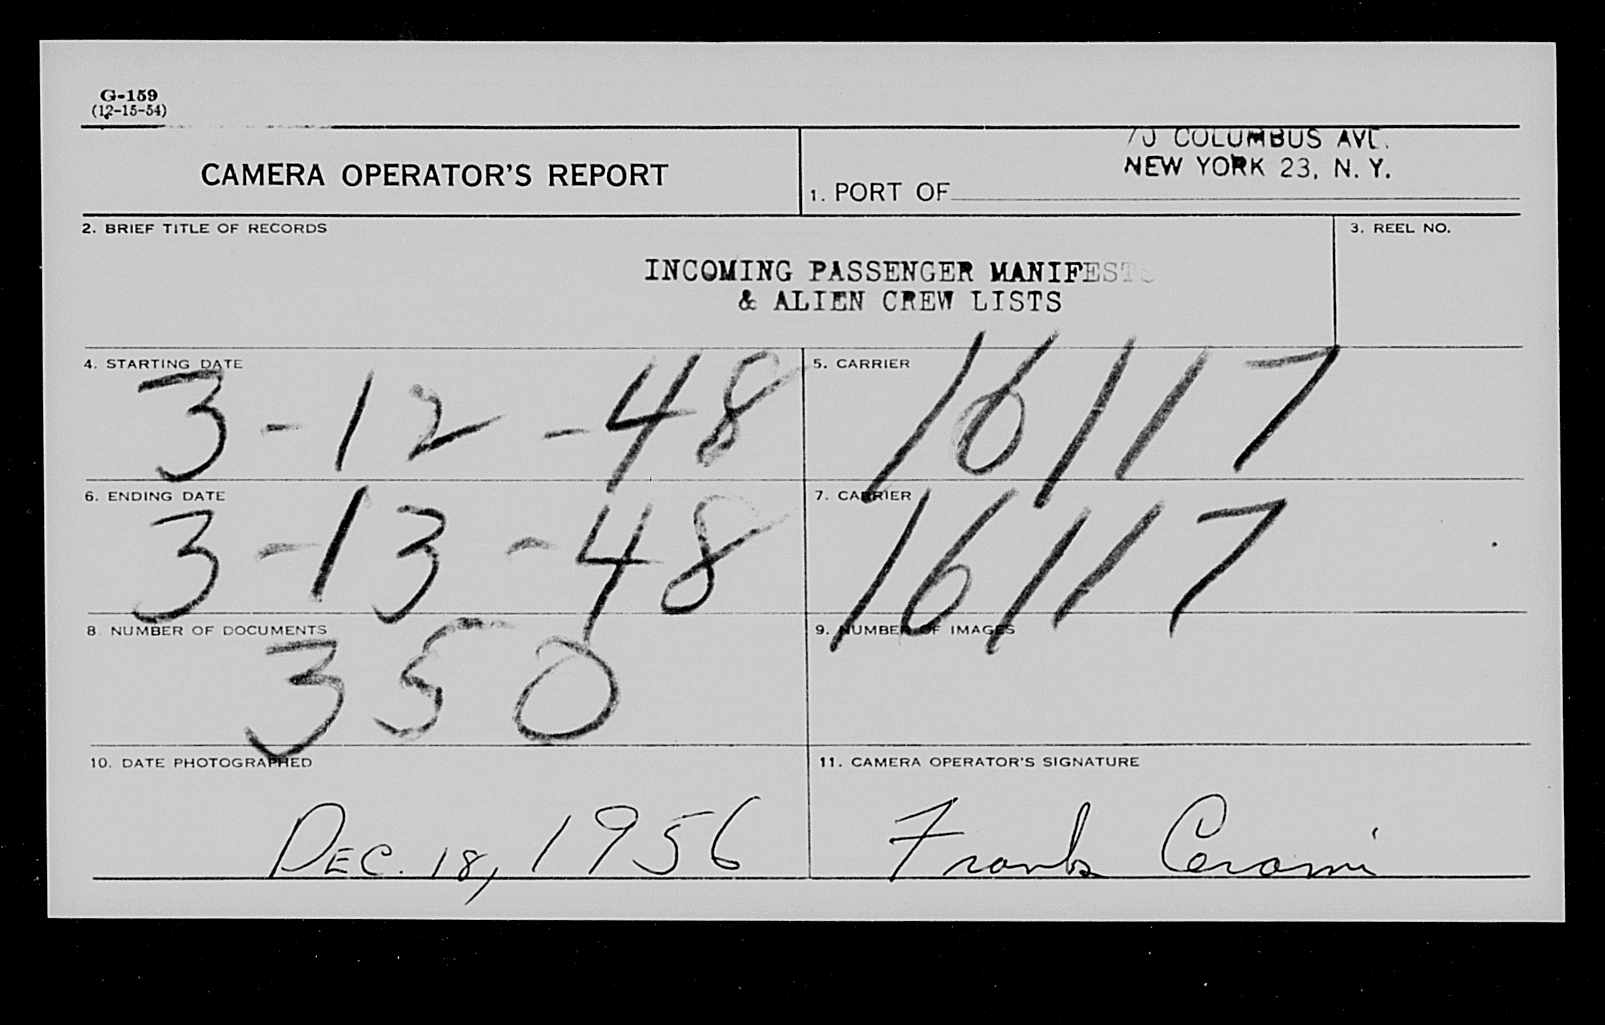 G-159
(12-15-54)
CAMERA OPERATOR'S REPORT
70 COLUMBUS AVE.
NEW YORK 23, N. Y.
1. PORT OF
2. BRIEF TITLE OF RECORDS
INCOMING PASSENGER MANIFESTS
& ALIEN CREW LISTS
3. REEL NO.
4. STARTING DATE
3-12-48
5. CARRIER
16117
6. ENDING DATE
3-13-48
7. CARRIER
16117
8. NUMBER OF DOCUMENTS
350
9. NUMBER OF IMAGES
10. DATE PHOTOGRAPHED
DEC. 18, 1956
11. CAMERA OPERATOR'S SIGNATURE
Frank Cerami